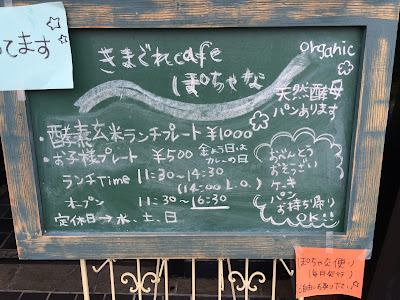 ってます☆
きまぐれcafe
ぽちゃな
organic
天然酵母
パンあります
・酵素玄米ランチプレート ¥1000
・お子様プレート ¥500
金よう日は
カレーの日
ランチTime 11:30〜14:30
(14:00 L.O.)
オープン 11:30〜16:30
定休日→水、土、日
おべんとう
おそうざい
ケーキ
パン
お持ち帰り
OK!!
ぽちゃな便り
(毎日発行)